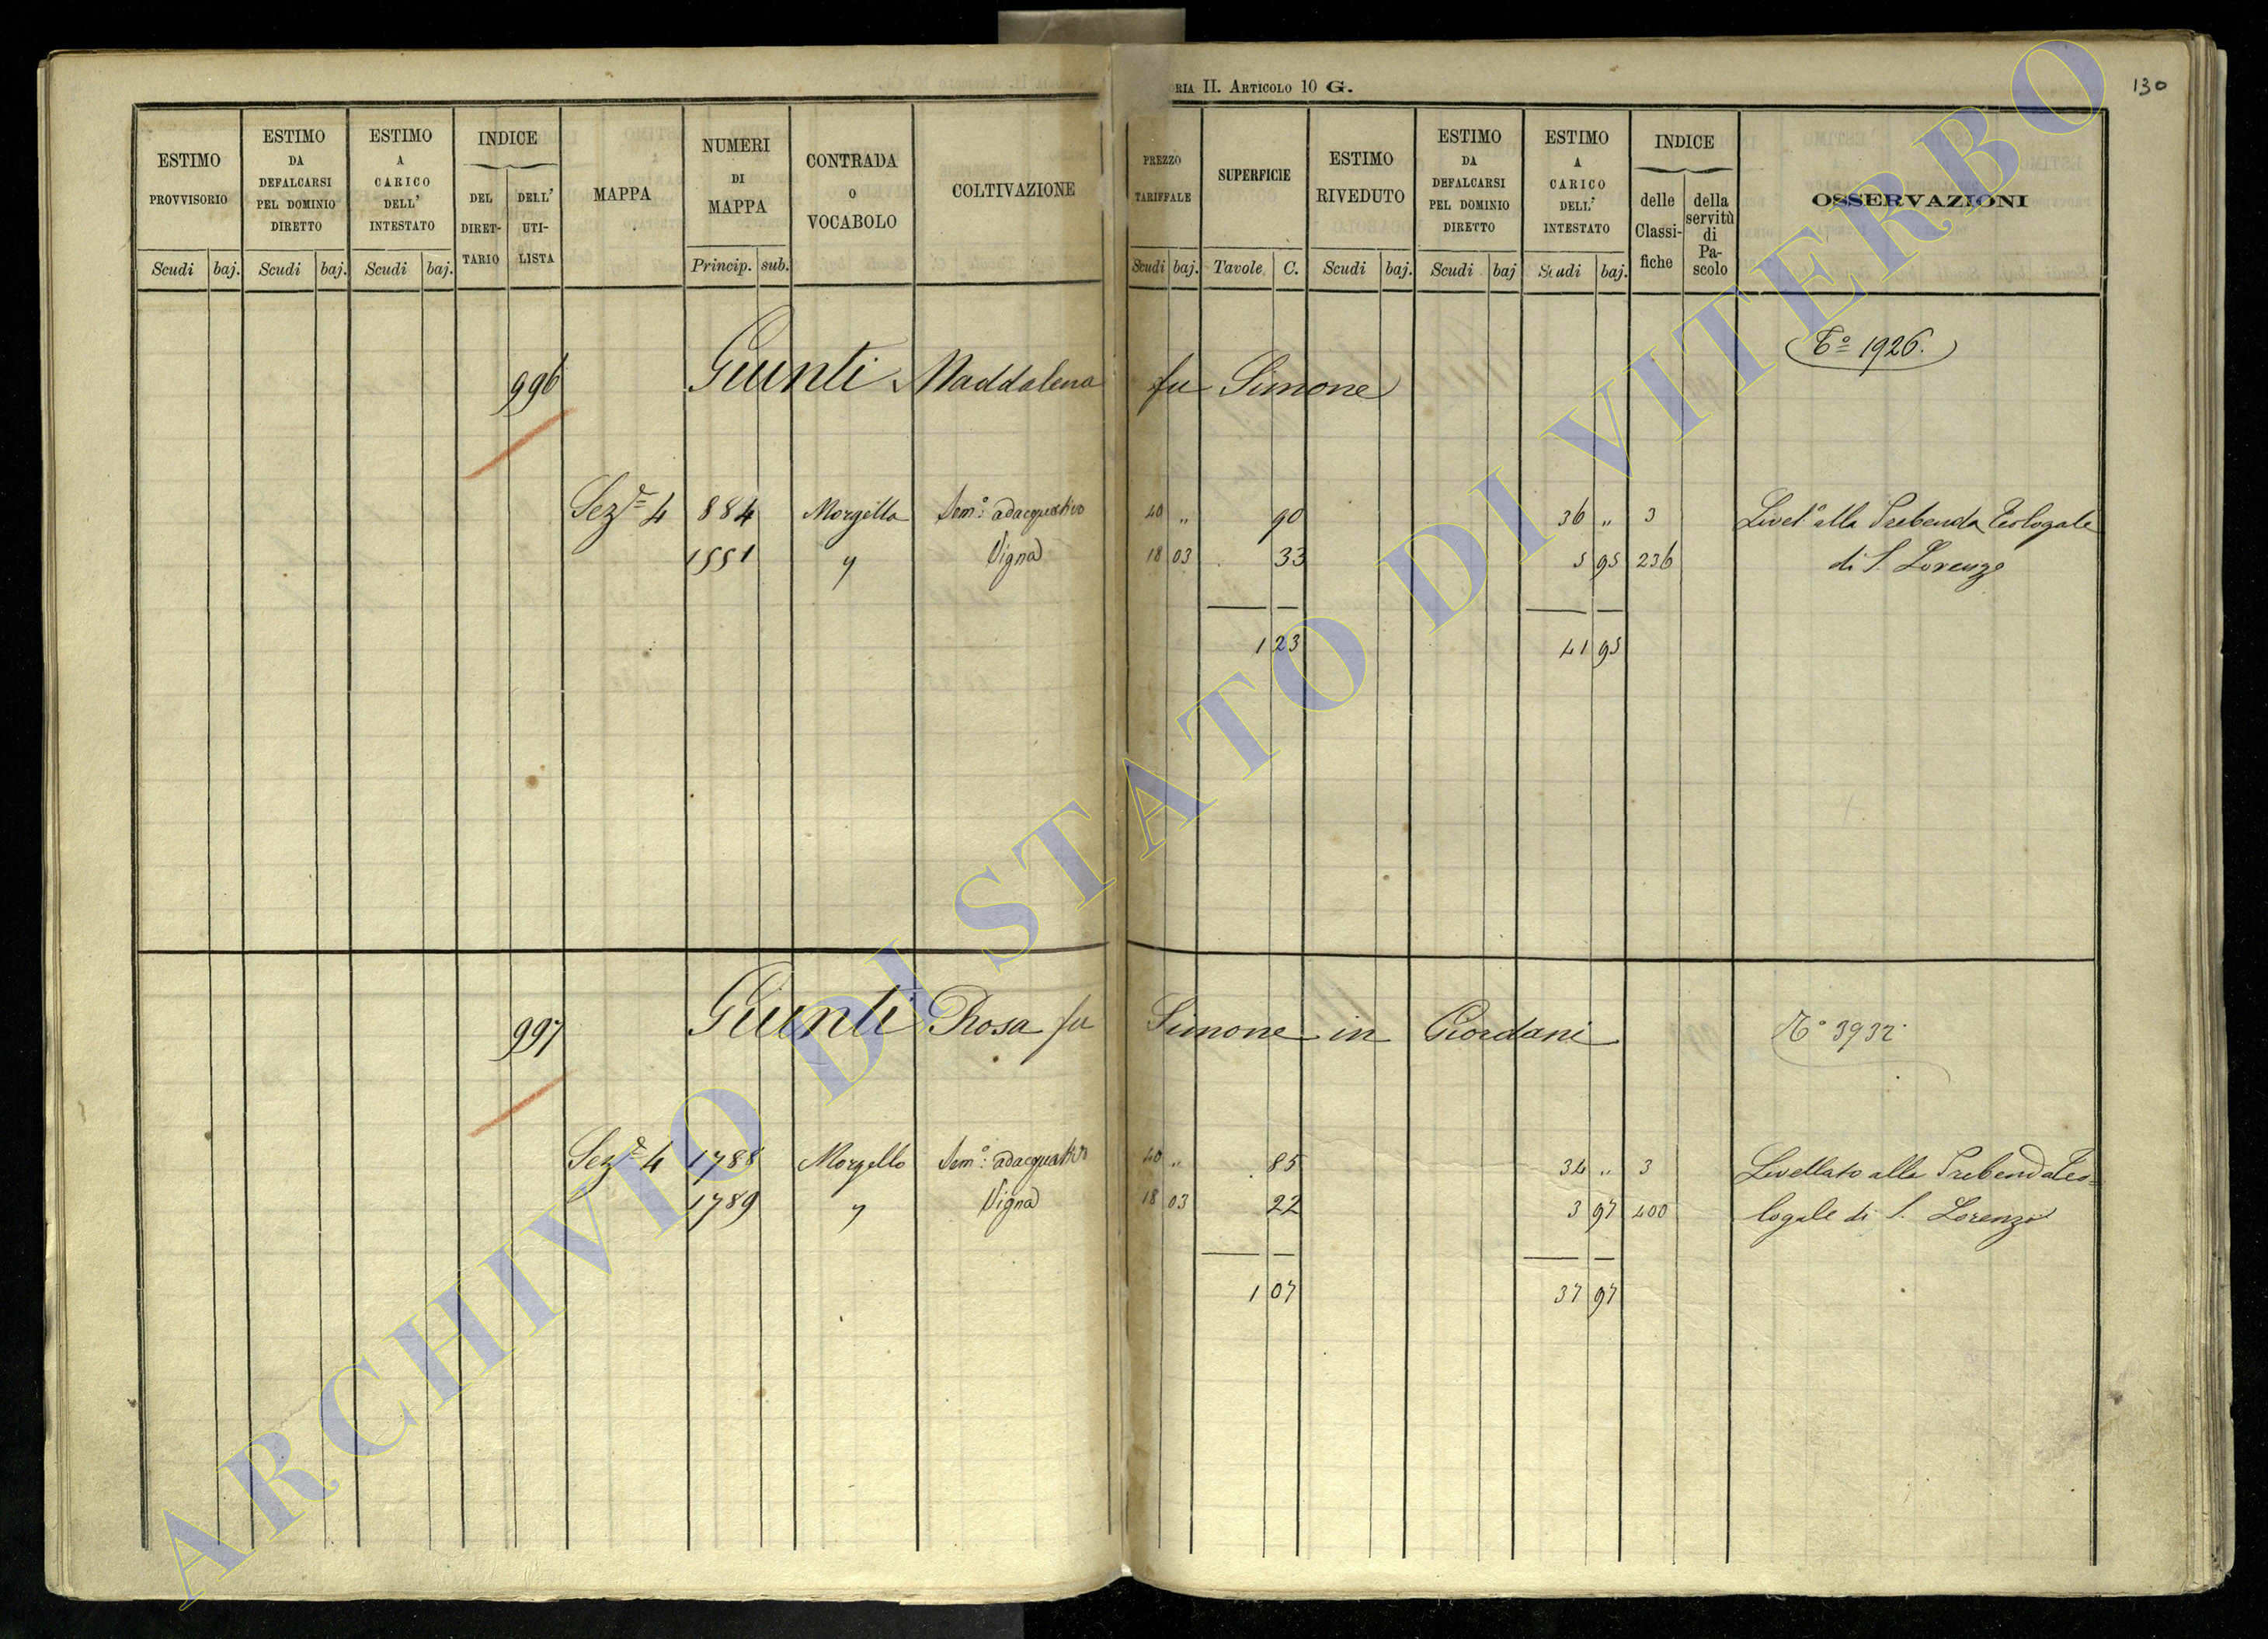 ORIA II. ARTICOLO 10 G.
130
ESTIMO PROVVISORIO
ESTIMO DA DEFALCARSI PEL DOMINIO DIRETTO
ESTIMO A CARICO DELL' INTESTATO
INDICE
DEL DIRET- TARIO
DELL' UTI- LISTA
MAPPA
NUMERI DI MAPPA
CONTRADA O VOCABOLO
COLTIVAZIONE
PREZZO TARIFFALE
SUPERFICIE
ESTIMO RIVEDUTO
ESTIMO DA DEFALCARSI PEL DOMINIO DIRETTO
ESTIMO A CARICO DELL' INTESTATO
INDICE
delle Classi- fiche
della servitù di Pa- scolo
OSSERVAZIONI
Scudi baj. Scudi baj. Scudi baj. Princip. sub. Scudi baj. Tavole C. Scudi baj. Scudi baj Scudi baj.
1926.
996 Giunti Maddalena fu Simone
Sez.e 4 884 Morgella Sem.o adacquativo 40 „ 90 36 „ 3 Livel.o alla Prebenda Teologale
1551 " Vigna 18 03 33 5 95 236 di S. Lorenzo
1 23 41 95
997 Giunti Rosa fu Simone in Giordani
Sez.e 4 1788 Morgella Sem.o adacquativo 40 „ 85 34 „ 3 Livellato alla Prebenda Teo=
1789 " Vigna 18 03 22 3 97 400 logale di S. Lorenzo
1 07 37 97
ARCHIVIO DI STATO DI VITERBO